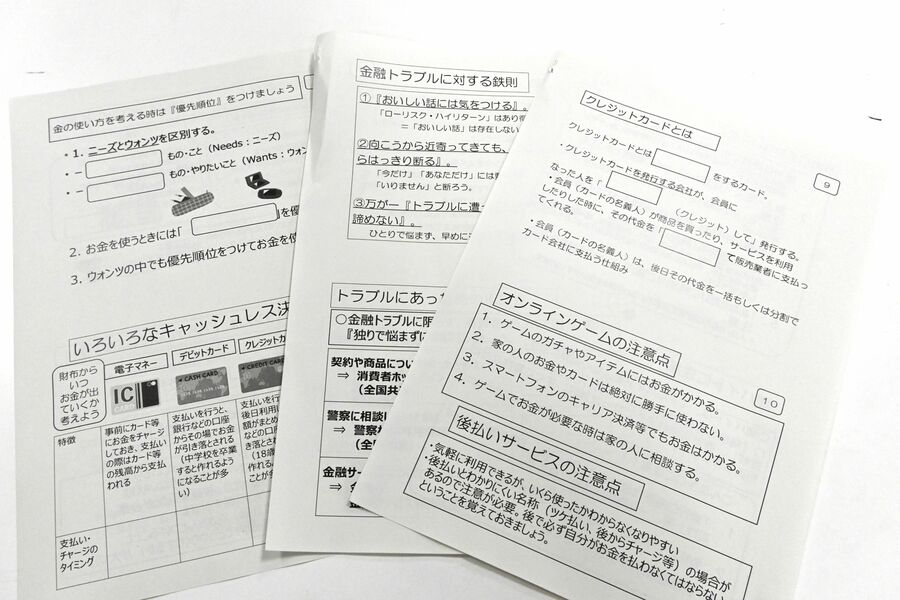 金の使い方を考える時は『優先順位』をつけましょう
・1. ニーズとウォンツを区別する。
・－ もの・こと（Needs：ニーズ）
・－ もの・やりたいこと（Wants：ウォン
2. お金を使うときには「 」を優
3. ウォンツの中でも優先順位をつけてお金を使
いろいろなキャッシュレス決
財布から
いつ
お金が出
ていくか
考えよう
電子マネー
デビットカード
クレジットカ
IC
CARD
CASH CARD
CREDIT CAR
特徴
事前にカード等
にお金をチャージ
しておき、支払い
の際はカード等
の残高から支払
われる
支払いを行うと、
銀行などの口座
からその場でお金
が引き落とされる
（中学校を卒業
すると作れるよう
になることが多
い）
支払いを行
後日利用
額がまとめ
などの口座
き落とされ
（18歳
作れる
ことが多
支払い・
チャージの
タイミング
金融トラブルに対する鉄則
①『おいしい話には気をつける』。
「ローリスク・ハイリターン」はあり得
＝「おいしい話」は存在しない
②向こうから近寄ってきても、
らはっきり断る』。
「今だけ」「あなただけ」には
「いりません」と断ろう。
③万が一『トラブルに遭っ
諦めない』。
ひとりで悩まず、早めに
トラブルにあっ
○金融トラブルに限
『独りで悩まずに
契約や商品につい
⇒ 消費者ホッ
（全国共
警察に相談
⇒ 警察
（全
金融サー
⇒
9
クレジットカードとは
クレジットカードとは をするカード。
・クレジットカードを発行する会社が、会員に
なった人を「 （クレジット）して」発行する。
・会員（カードの名義人）が商品を買ったり、サービスを利用
したりした時に、その代金を「 て販売業者に支払っ
てくれる。
・会員（カードの名義人）は、後日その代金を一括もしくは分割で
カード会社に支払う仕組み
10
オンラインゲームの注意点
1. ゲームのガチャやアイテムにはお金がかかる。
2. 家の人のお金やカードは絶対に勝手に使わない。
3. スマートフォンのキャリア決済等でもお金はかかる。
4. ゲームでお金が必要な時は家の人に相談する。
後払いサービスの注意点
・気軽に利用できるが、いくら使ったかわからなくなりやすい
・後払いとわかりにくい名称（ツケ払い、後からチャージ等）の場合が
あるので注意が必要。後で必ず自分がお金を払わなくてはならない
ということを覚えておきましょう。